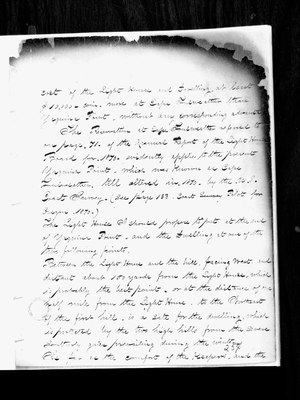 cost of the Light House and Dwelling, at least
$10,000 more at Cape Foulweather than
Yaquina Point, without any corresponding advant
The Foulweather at Cape Foulweather referred to
on page, 71. of the Annual Report of the Light House
Board for 1870. evidently applies to the present
Yaquina Point, which was known as Cape
Foulweather, till altered in 1870, by the U.S.
Coast Survey, (See page 183. Coast Survey Pilot for
Oregon 1870.)
The Light House I should propose to put at the end
of Yaquina Point, and the Dwelling at one of the
two following points.
Between the Light House and the hill, facing West and
distant about 100 yards from the Light House, which
is probably the best point, or at the distance of one
half mile from the Light House, to the Northeast
of the first hill, is a site for the dwelling, which
is protected by the two high hills from the severe
southerly gales prevailing during the winter
So far as the comfort of the Keepers, and the